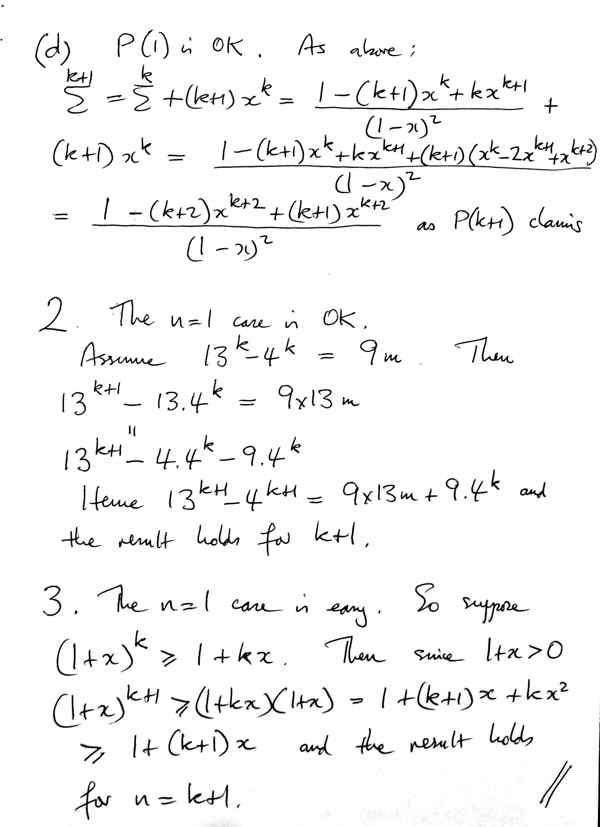 (d) P(1) is OK. As above:
k+1 Σ = k Σ + (k+1)x^k = (1-(k+1)x^k+kx^(k+1))/(1-x)^2 +
(k+1)x^k = (1-(k+1)x^k+kx^(k+1)+(k+1)(x^k-2x^(k+1)+x^(k+2)))/(1-x)^2
= (1-(k+2)x^(k+2)+(k+1)x^(k+2))/(1-x)^2 as P(k+1) claims
2. The n=1 case is OK.
Assume 13^k-4^k = 9m. Then
13^(k+1) - 13.4^k = 9x13m
"
13^(k+1) - 4.4^k - 9.4^k
Hence 13^(k+1)-4^(k+1) = 9x13m + 9.4^k and
the result holds for k+1.
3. The n=1 case is easy. So suppose
(1+x)^k ⩾ 1+kx. Then since 1+x>0
(1+x)^(k+1) ⩾ (1+kx)(1+x) = 1+(k+1)x+kx^2
⩾ 1+(k+1)x and the result holds
for n=k+1. //